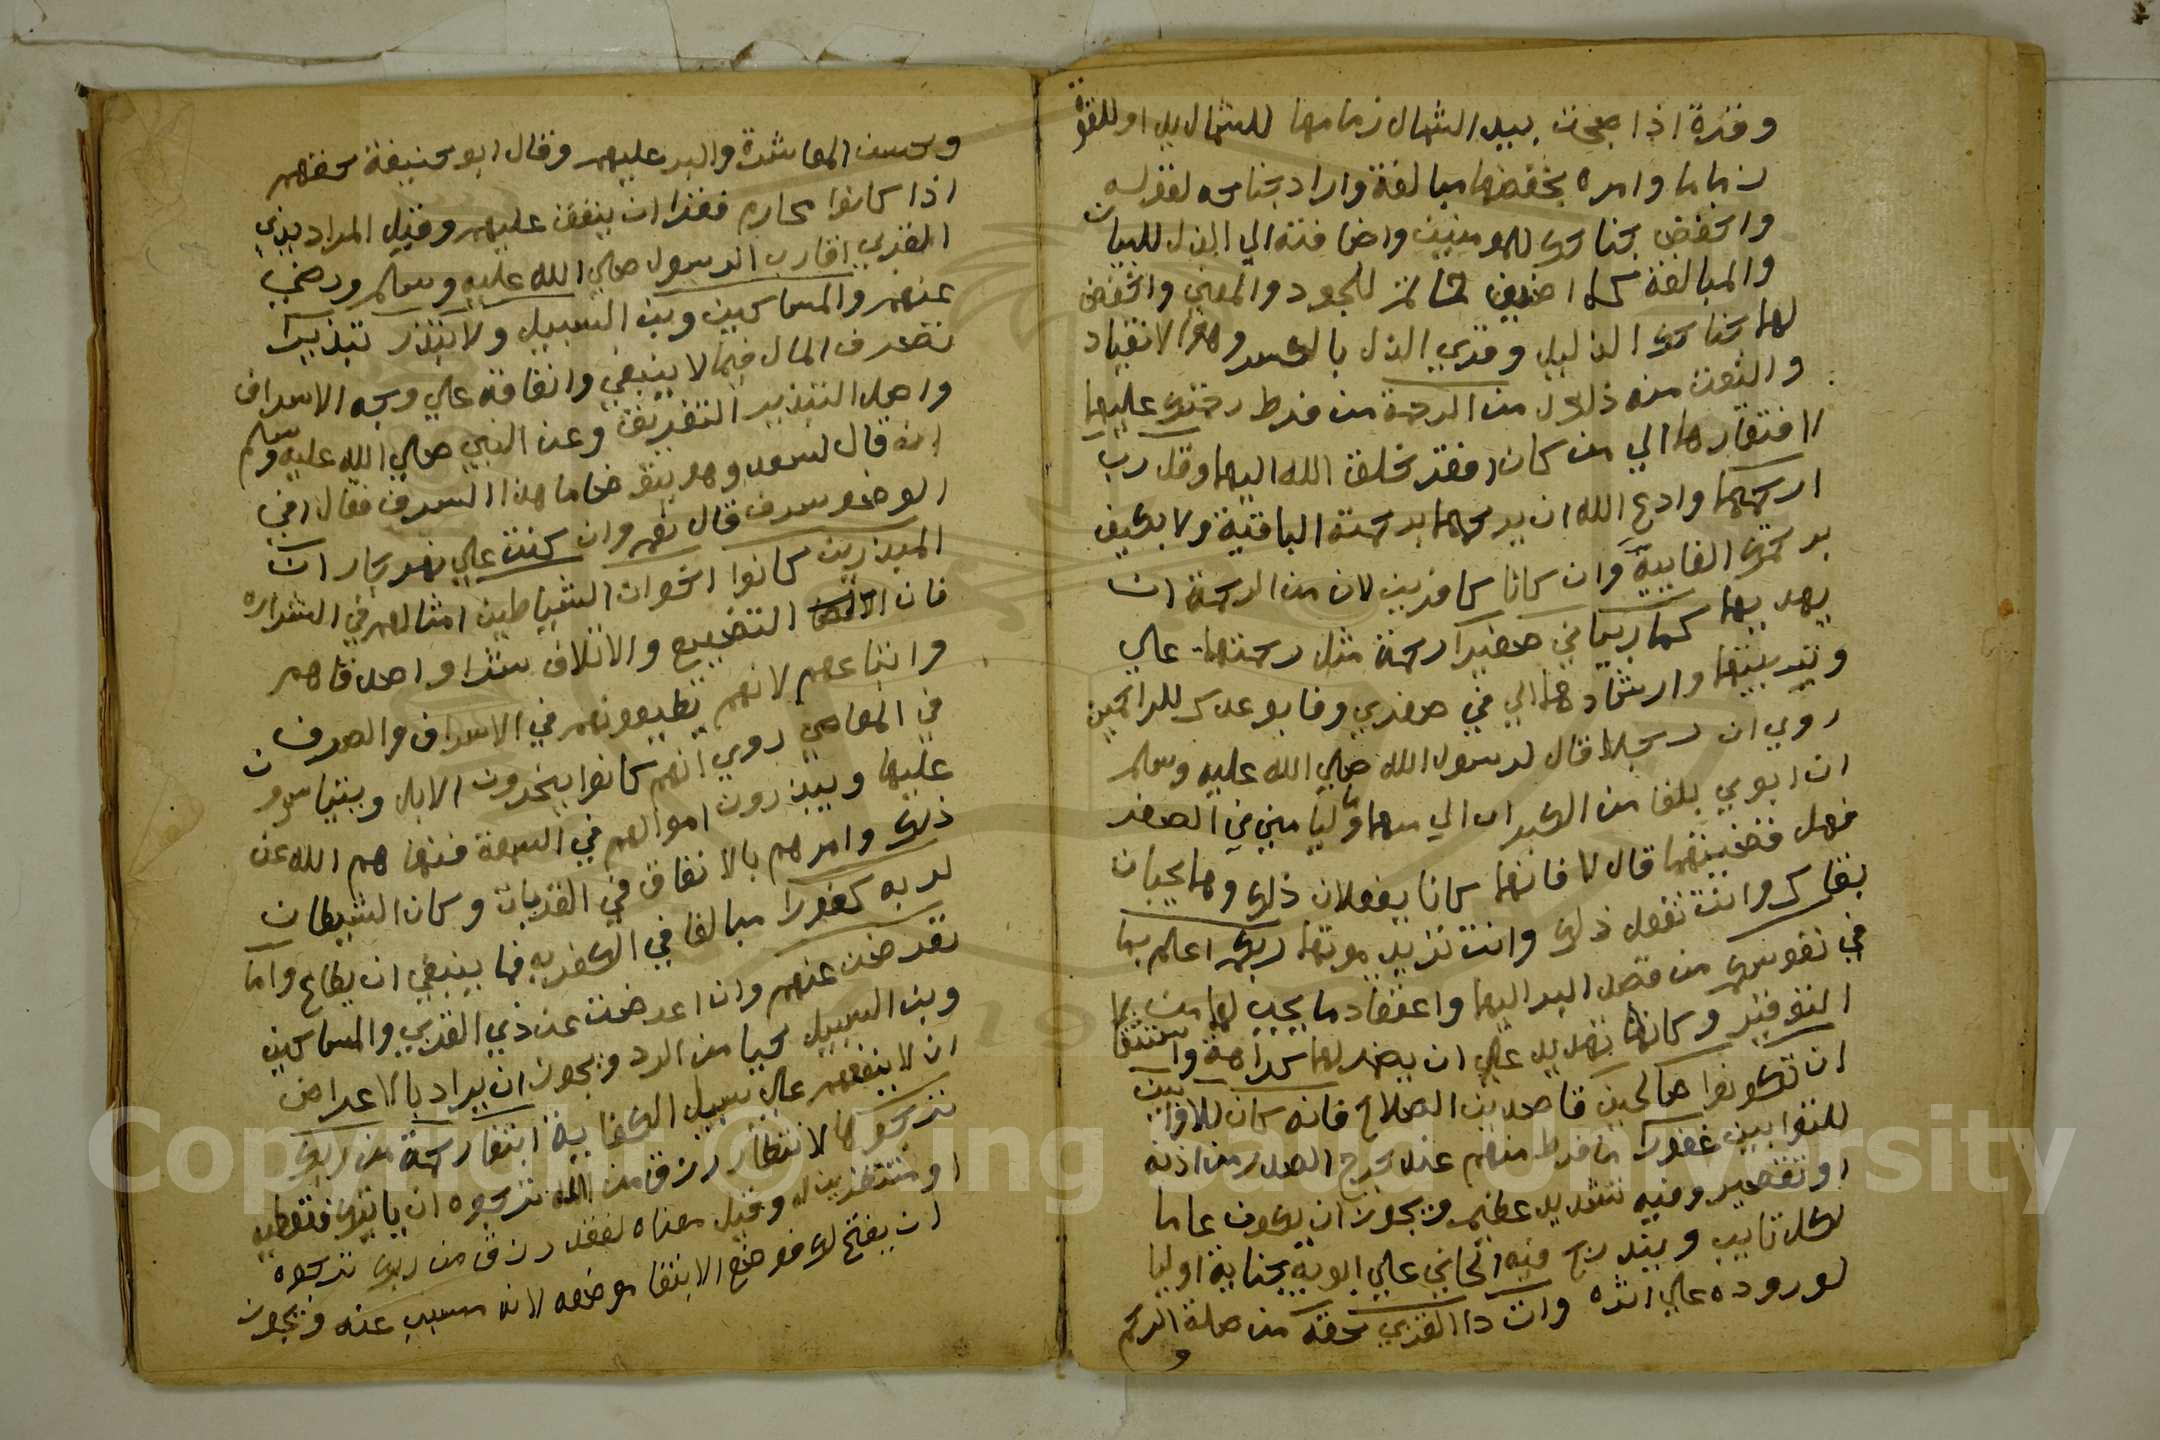 وقرة اذا صبحت بيد الشمال زمامها للشمال يدا وللقرة
زماما وامره بخفضها مبالغة واراد جناحه لقوله
واخفض جناحك للمومنين واضافته الي الذل للبيان
والمبالغة كما اضيف حاتم للجود والمعني واخفض
لهما جناحك الذليل وقري الذل بالكسر وهو الانقياد
والنعت منه ذلول من الرحمة من فرط رحمتك عليهما
لافتقارهما الي من كان افقر خلق الله اليهما وقل رب
ارحمهما وادع الله ان يرحمهما برحمته الباقية ولا يكتف
برحمتك الفانية وان كانا كافرين لان من الرحمة ان
يهديهما كما ربياني صغيرا رحمة مثل رحمتهما علي
وتربيتهما وارشادهما الي في صغري وفا بوعدك للراحمين
روي ان رجلا قال لرسول الله صلي الله عليه وسلم
ان ابوي بلغا من الكبر ان الي منهما ما وليا مني في الصغر
فهل قضيتهما قال لا فانهما كانا يفعلان ذلك وهما يحبان
بقاك وانت تفعل ذلك وانت تريد موتهما ربكم اعلم بما
في نفوسكم من قصد البر اليهما واعتقاد ما يجب لهما من
التوقير وكانه تهديد علي ان يضمر لهما كراهة واستثقالا
ان تكونوا صالحين قاصدين الصلاح فانه كان للاوابين
للتوابين غفورا ما فرط منهم عند حرج الصدر من اذية
او تقصير وفيه تشديد عظيم ويجوز ان يكون عاما
لكل تايب ويندرج فيه الجاني علي ابويه جناية اوليا
لوروده علي اثره وات ذا القربي حقه من صلة الرحم
و
وحسن المعاشرة والبر عليهم وقال ابو حنيفة حقهم
اذا كانوا محارم فقرا ان ينفق عليهم وقيل المراد بذي
القربي اقارب الرسول صلي الله عليه وسلم ورضي
عنهم والمساكين وبن السبيل ولا تبذر تبذيرا
تصرف المال فيما لا ينبغي وانفاقه علي وجه الاسراف
واصل التبذير التفريق وعن النبي صلي الله عليه وسلم
انه قال لسعد وهو يتوضا ما هذا السرف فقال افي
الوضو سرف قال نعم وان كنت علي نهر جار ان
المبذرين كانوا اخوان الشياطين امثالهم في الشرارة
فان التضييع والاتلاف شر او اصدقاهم
واتباعهم لانهم يطيعونهم في الاسراف والصرف
في المعاصي روي انهم كانوا ينحرون الابل ويتياسرون
عليها ويبذرون اموالهم في السمعة فنهاهم الله عن
ذلك وامرهم بالانفاق في القربات وكان الشيطان
لربه كفورا مبالغا في الكفر به فما ينبغي ان يطاع واما
تعرضن عنهم وان اعرضت عن ذي القربي والمساكين
وبن السبيل حيا من الرد ويجوز ان يراد بالاعراض
ان لا ينفعهم علي سبيل الكناية ابتغا رحمة من ربك
ترجوها لانتظار رزق من الله ترجوه ان ياتيك فتعطيه
او منتظرين له وقيل معناه لفقد رزق من ربك ترجوه
ان يفتح لك فوضع الابتغا موضعه لانه مسبب عنه ويجوز